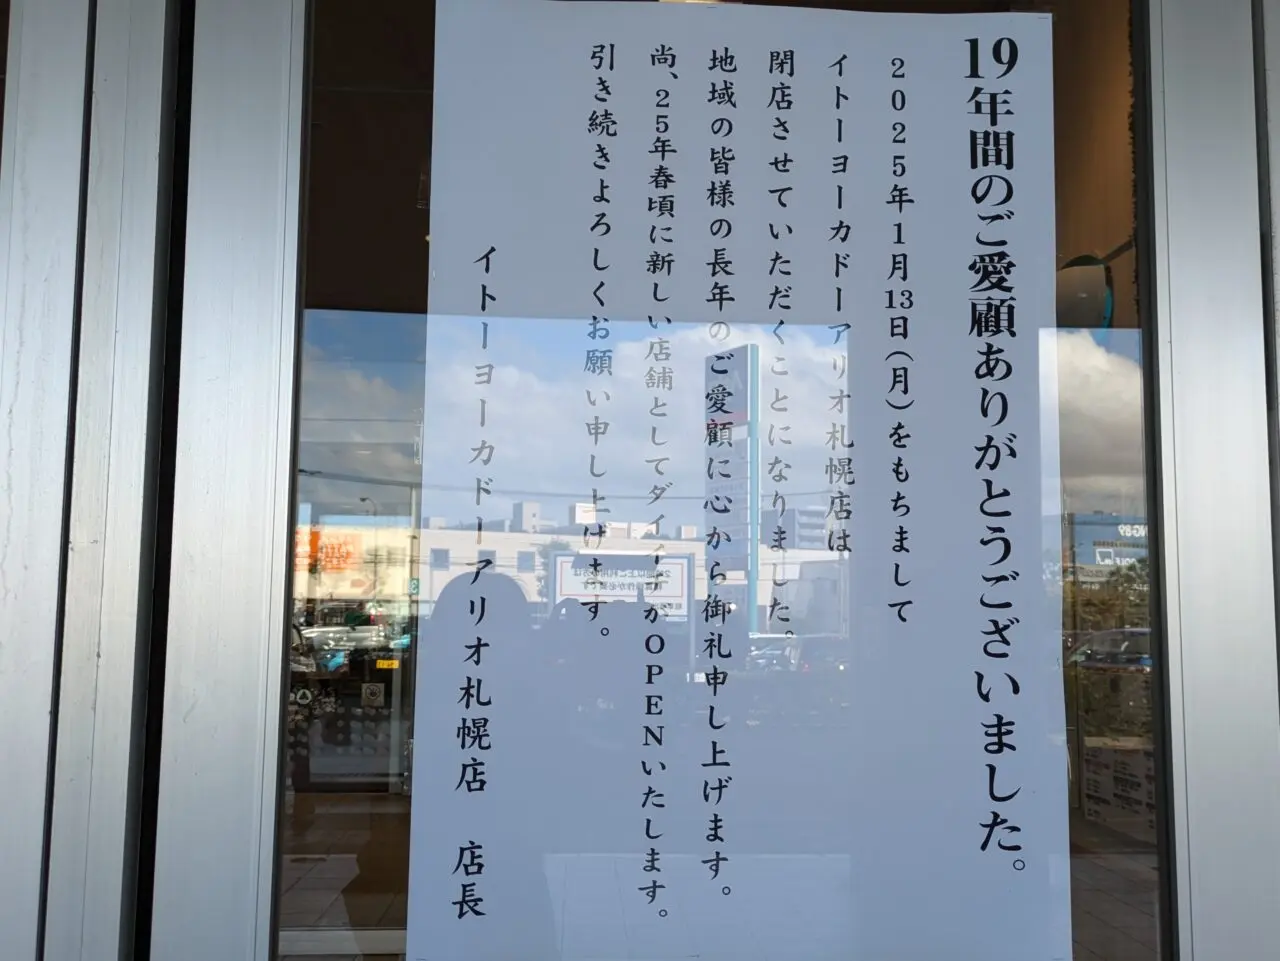 19年間のご愛顧ありがとうございました。
2025年1月13日(月)をもちまして
イトーヨーカドーアリオ札幌店は
閉店させていただくことになりました。
地域の皆様の長年のご愛顧に心から御礼申し上げます。
尚、25年春頃に新しい店舗としてダイイチがOPENいたします。
引き続きよろしくお願い申し上げます。
イトーヨーカドーアリオ札幌店 店長